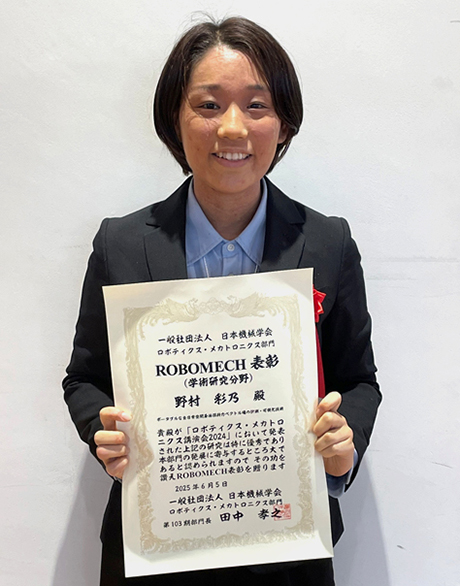 一般社団法人 日本機械学会
ロボティクス・メカトロニクス部門
ROBOMECH 表彰
(学術研究分野)
野村 彩乃 殿
貴殿が「ロボティクス・メカトロ
ニクス講演会2024」において発表
された上記の研究は特に優秀であり
本部門の発展に寄与するところ大で
あると認められますので その功を
讃えROBOMECH表彰を贈ります
2025年6月5日
一般社団法人 日本機械学会
ロボティクス・メカトロニクス部門
第103期部門長 田中 孝之